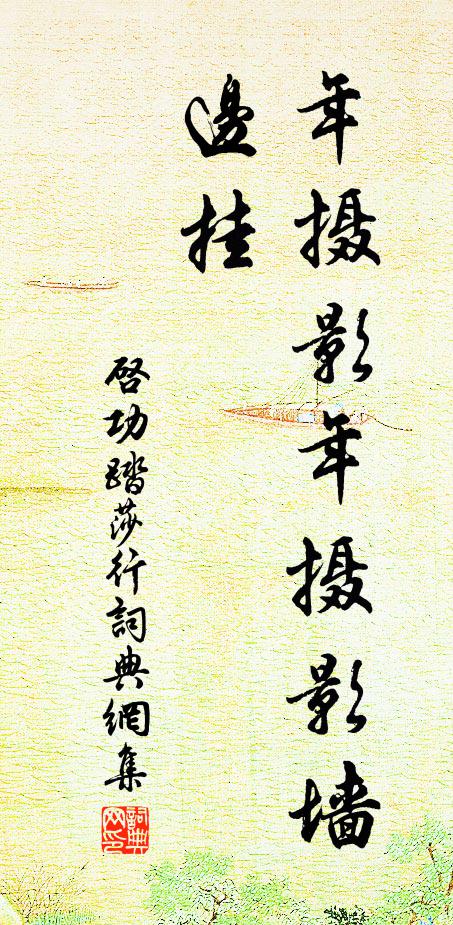 年摄影年摄影墙
邊挂
启功踏莎行詞典網集
詞典
网印